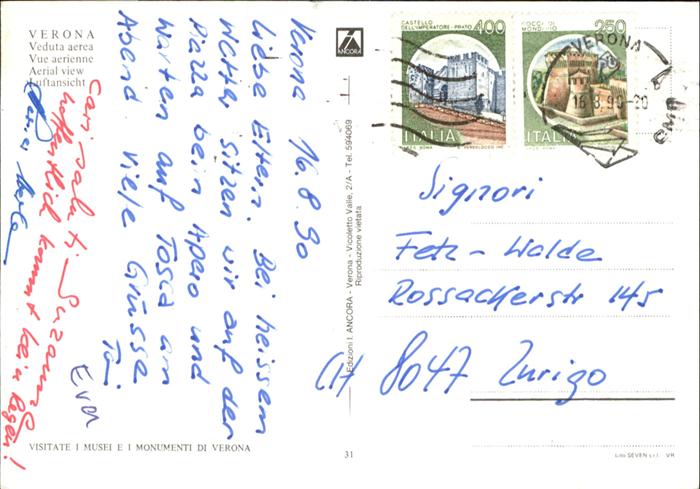 VERONA
Veduta aerea
Vue aérienne
Aerial view
Luftansicht
Verona 16.8.90
Liebe Eltern. Bei heissem
Wetter sitzen wir auf der
Piazza beim Apero und
warten auf Tosca am
Abend. Viele Grüsse
Eva
Cari saluti Suzanne
hoffentlich kommt kein Regen!
VISITATE I MUSEI E I MONUMENTI DI VERONA
ANCORA
Edizioni I. ANCORA - Verona - Vicoletto Valle, 2/A - Tel. 594069
Riproduzione vietata
31
CASTELLO
DELL'IMPERATORE - PRATO
400
ITALIA
ROCCA DI
MONDAVIO
250
ITALIA
VERONA
16.8.90-20
Signori
Fetz-Walde
Rossackerstr 145
CH 8047 Zurigo
Lito SEVEN s.r.l. VR